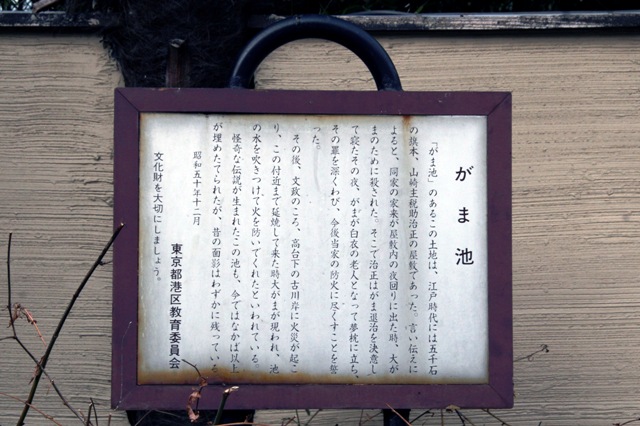 がま池
「がま池」のあるこの土地は、江戸時代には五千石
の旗本、山崎主税助治正の屋敷であった。言い伝えに
よると、同家の家来が屋敷内の夜回りに出た時、大が
まのために殺された。そこで治正はがま退治を決意し
て寝たその夜、がまが白衣の老人となって夢枕に立ち、
その罪を深くわび、今後当家の防火に尽くすことを誓
った。
その後、文政のころ、高台下の古川岸に火災が起こ
り、この付近まで延焼して来た時大がまが現われ、池
の水を吹きつけて火を防いでくれたといわれている。
怪奇な伝説が生まれたこの池も、今ではなかば以上
が埋めたてられたが、昔の面影はわずかに残っている
昭和五十年十二月
東京都港区教育委員会
文化財を大切にしましょう。